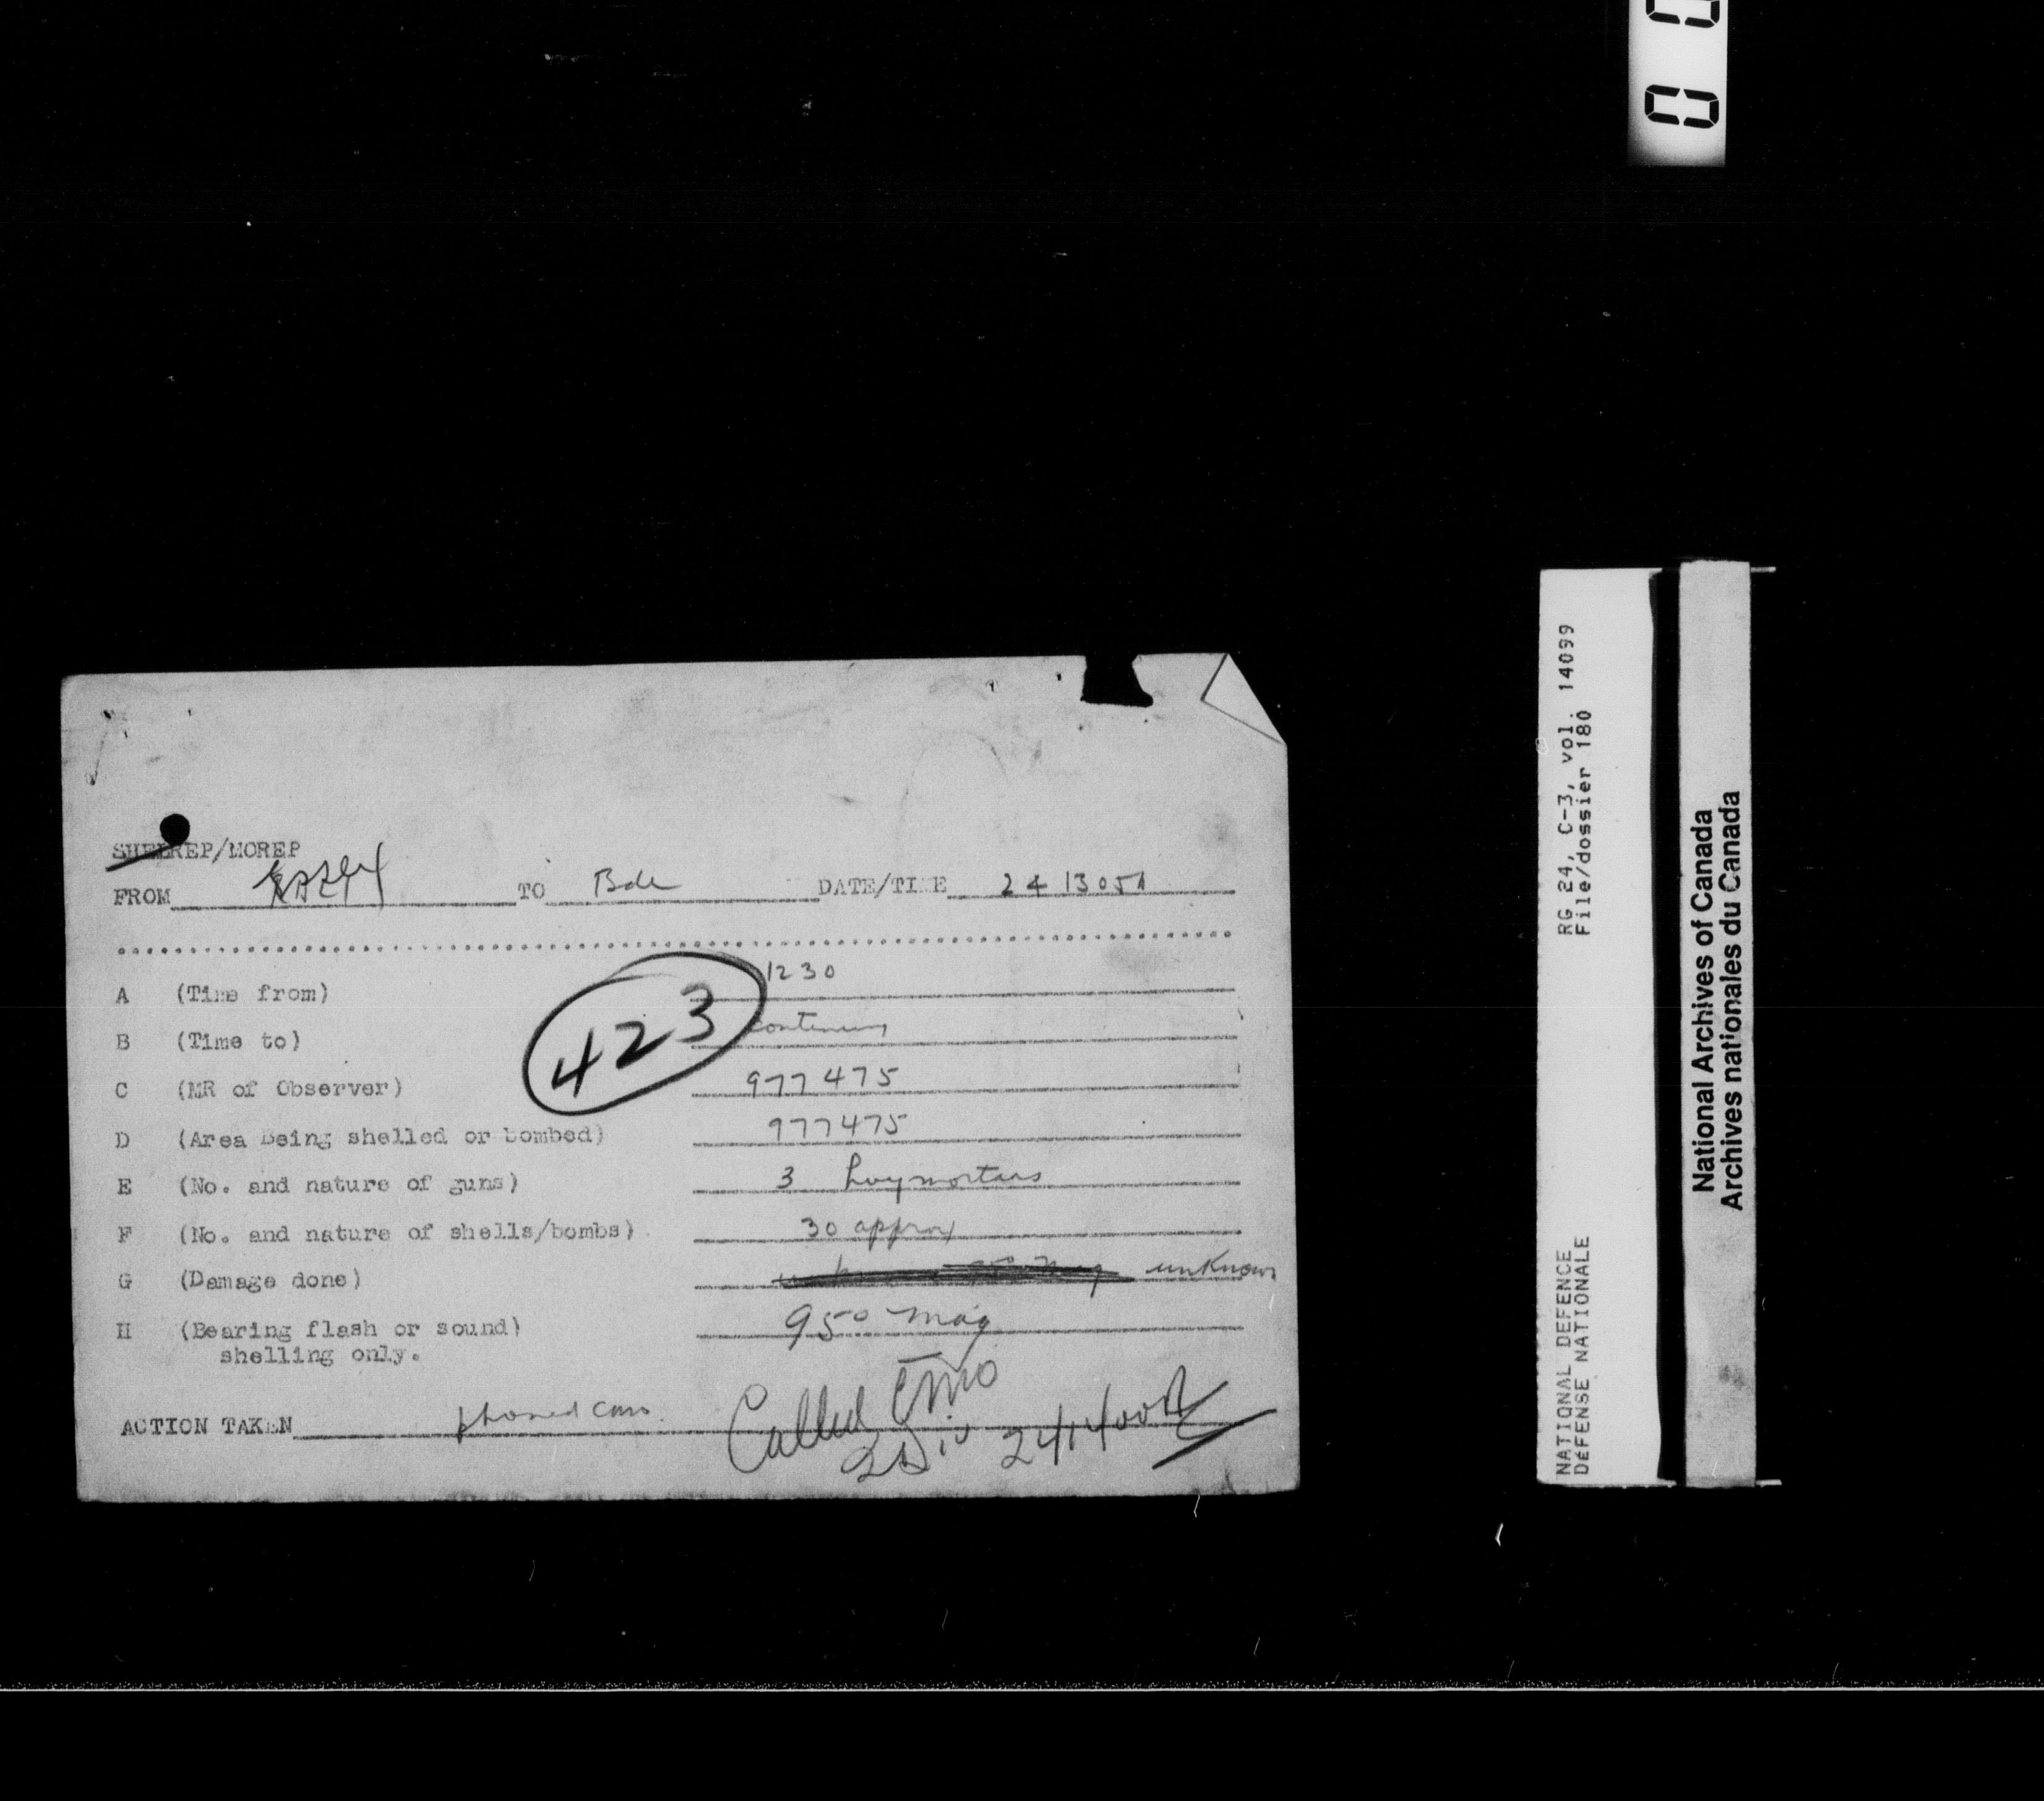 0 0
SHELREP/MOREP
FROM TO Bde DATE/TIME 24 1305A
423
A (Time from) 1230
B (Time to) continuing
C (MR of Observer) 977475
D (Area being shelled or bombed) 977475
E (No. and nature of guns) 3 hvy mortars
F (No. and nature of shells/bombs) 30 approx
G (Damage done) unknown
H (Bearing flash or sound) 950 mag
shelling only.
ACTION TAKEN phoned CMO
Called CMO
2 Div 241400A
RG 24, C-3, vol. 14099
File/dossier 180
NATIONAL DEFENCE
DéFENSE NATIONALE
National Archives of Canada
Archives nationales du Canada